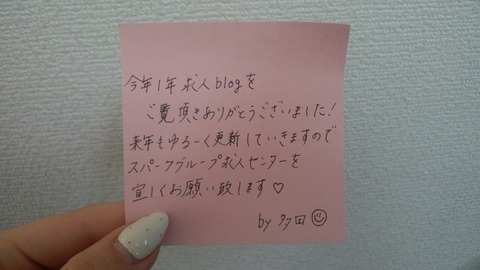 今年1年求人blogを
ご覧頂きありがとうございました!
来年もゆるーく更新していきますので
スパークグループ求人センターを
宜しくお願い致します♡
by 多田☺